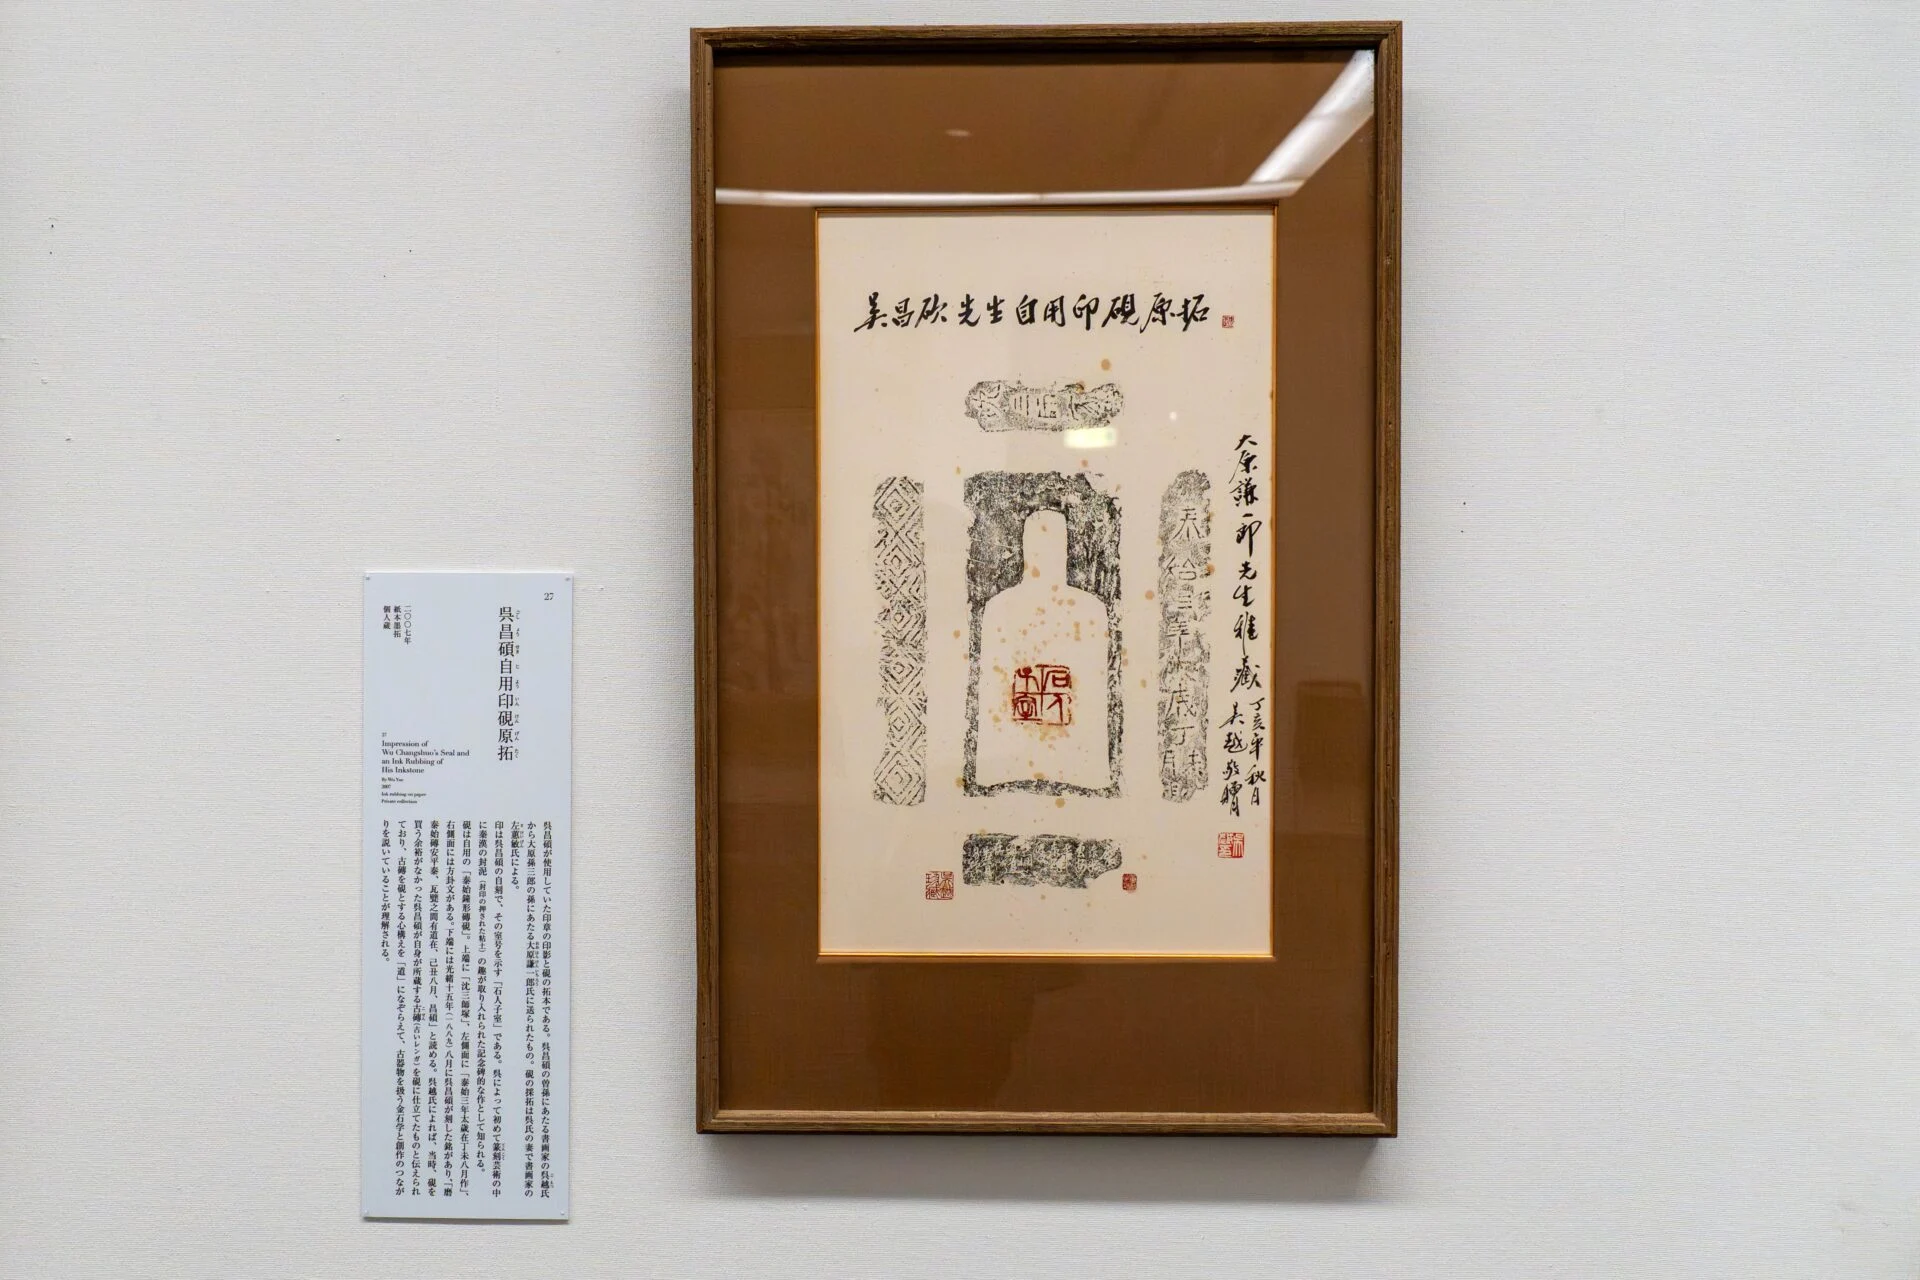 吳昌砍先生自用印硯原拓
大原謙一郎先生雅藏
丁亥年秋月
吴越敬贈
石人子室
27
呉昌碩自用印硯原拓
ごしょうせきじよういんけんげんたく
二〇〇七年
紙本墨拓
個人蔵
27
Impression of
Wu Changshuo's Seal and
an Ink Rubbing of
His Inkstone
By Wu Yue
2007
Ink rubbing on paper
Private collection
呉昌碩が使用していた印章の印影と硯の拓本である。呉昌碩の曽孫にあたる書画家の呉越氏
から大原孫三郎の孫にあたる大原謙一郎氏に送られたもの。硯の採拓は呉氏の妻で書画家の
左蕙敏氏による。
印は呉昌碩の自刻で、その室号を示す「石人子室」である。呉によって初めて篆刻芸術の中
に秦漢の封泥(封印の押された粘土)の趣が取り入れられた記念碑的な作として知られる。
硯は自用の「泰始鐘形磚硯」。上端に「沈三師塚」、左側面に「泰始三年太歳在丁未八月作」、
右側面には方卦文がある。下端には光緒十五年(一八八九)八月に呉昌碩が刻した銘があり、「磨
泰始磚安平泰、瓦甓之間有道在、己丑八月、昌碩」と読める。呉越氏によれば、当時、硯を
買う余裕がなかった呉昌碩が自身が所蔵する古磚(古いレンガ)を硯に仕立てたものと伝えられ
ており、古磚を硯とする心構えを「道」になぞらえて、古器物を扱う金石学と創作のつなが
りを説いていることが理解される。